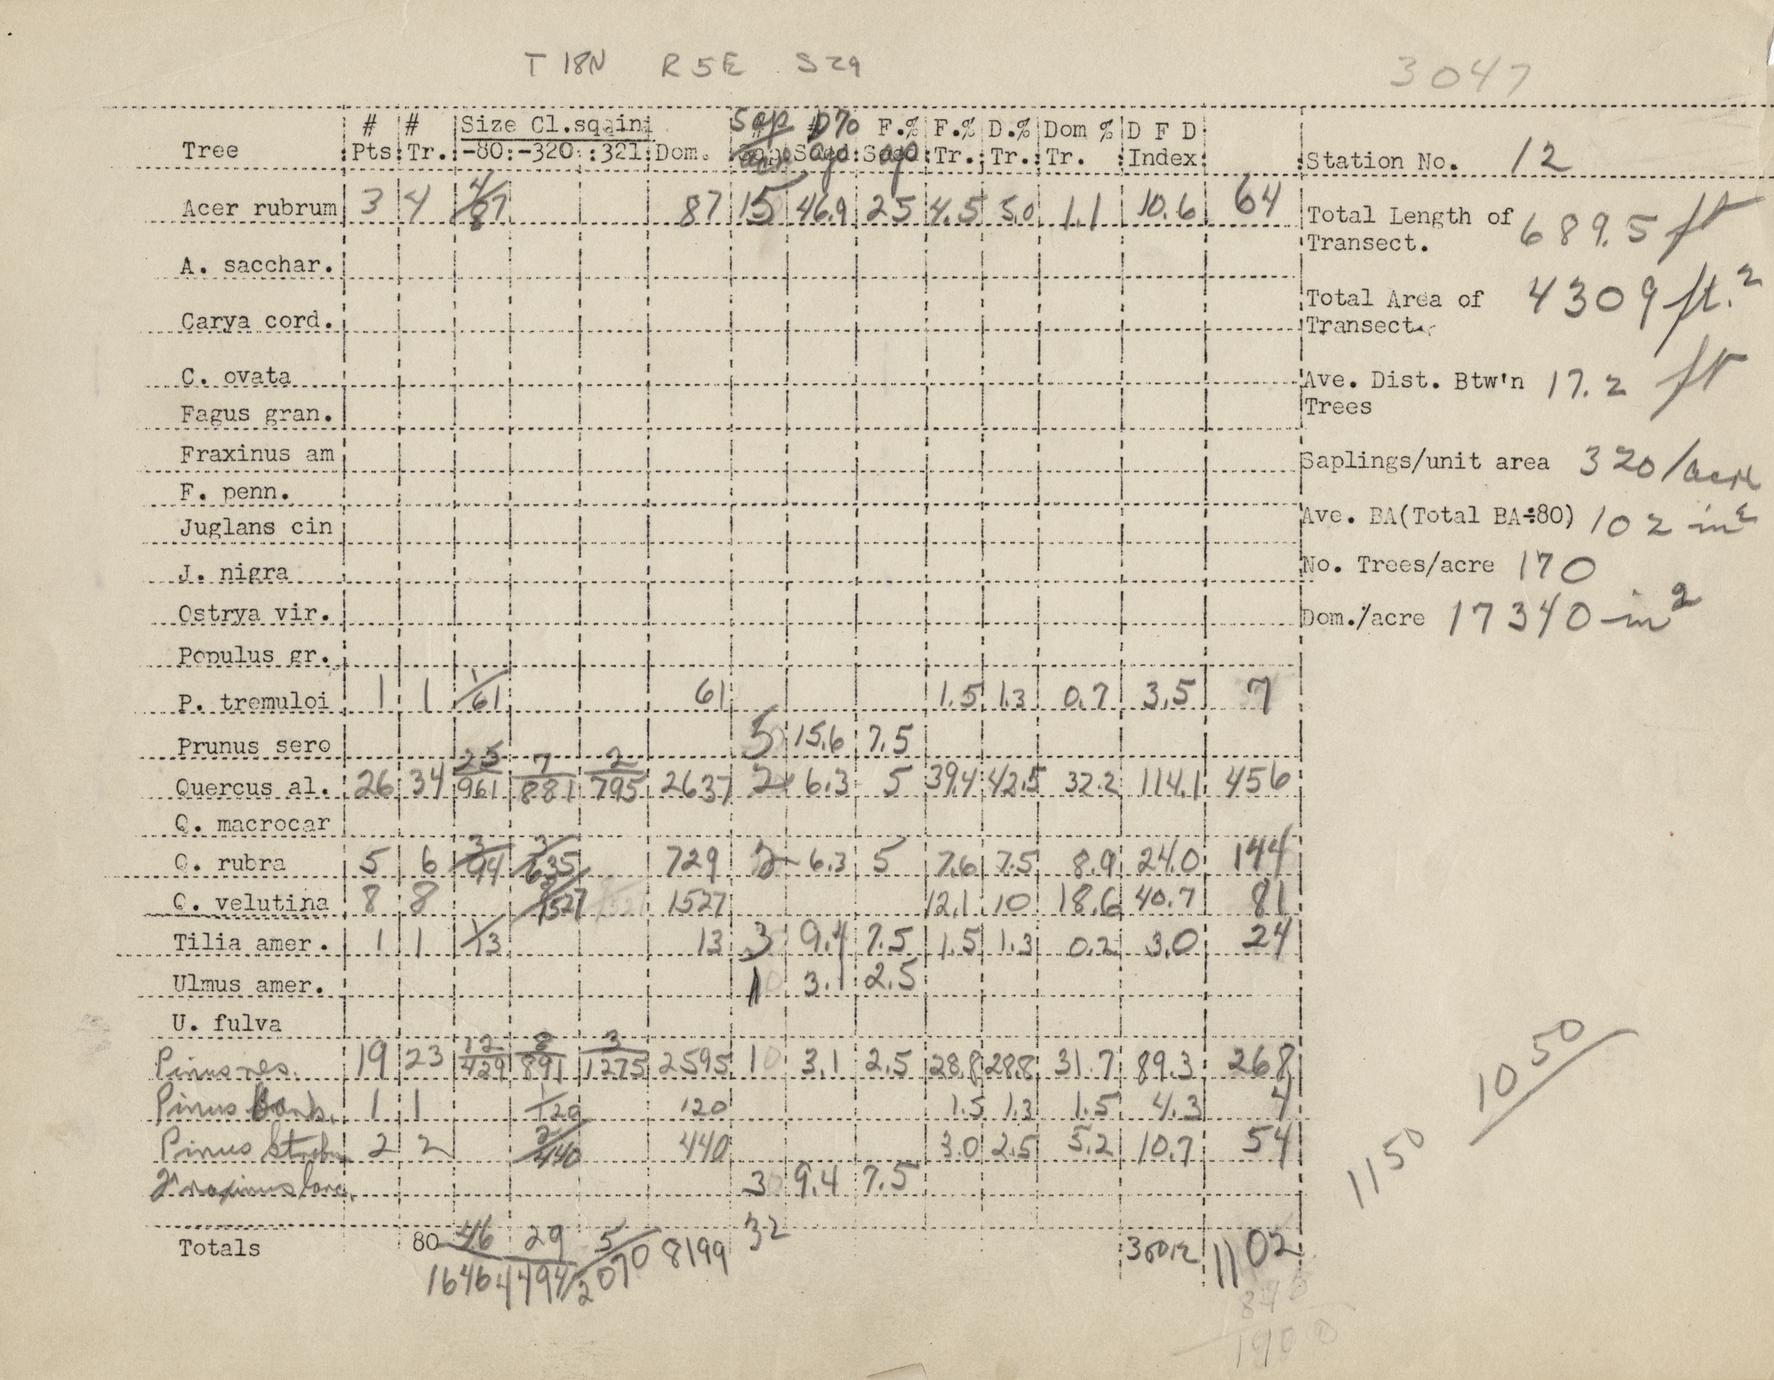 T 18N R5E S29
3047
Tree # Pts. # Tr. Size Cl.sqain -80: -320: :321 Dom. Sap D% Sapd F.% Sap F.% Tr. D.% Tr. Dom % Tr. D F D Index
Station No. 12
Acer rubrum 3 4 4/87 87 15 46.9 25 4.5 5.0 1.1 10.6 64
Total Length of Transect. 689.5 ft
A. sacchar.
Total Area of Transect. 4309 ft.2
Carya cord.
C. ovata
Ave. Dist. Btw'n Trees 17.2 ft
Fagus gran.
Fraxinus am
Saplings/unit area 320/acre
F. penn.
Ave. BA(Total BA÷80) 102 in2
Juglans cin
J. nigra
No. Trees/acre 170
Ostrya vir.
Dom./acre 17340 in2
Populus gr.
P. tremuloi 1 1 1/61 61 1.5 1.3 0.7 3.5 7
Prunus sero 5 15.6 7.5
Quercus al. 26 34 25/961 7/881 2/795 2637 2 6.3 5 39.4 42.5 32.2 114.1 456
Q. macrocar
Q. rubra 5 6 3/94 3/635 729 2 6.3 5 7.6 7.5 8.9 24.0 144
Q. velutina 8 8 8/1527 1527 12.1 10 18.6 40.7 81
Tilia amer. 1 1 1/13 13 3 9.4 7.5 1.5 1.3 0.2 3.0 24
Ulmus amer. 1 3.1 2.5
U. fulva
Pinus res. 19 23 12/429 8/891 3/1275 2595 1 3.1 2.5 28.8 28.8 31.7 89.3 268
Pinus Bank. 1 1 1/120 120 1.5 1.3 1.5 4.3 4
Pinus Strobu 2 2 2/440 440 3.0 2.5 5.2 10.7 54
3 9.4 7.5
Totals 80 46/1646 29/4494 5/2070 8199 32 300.2 1102
1050
1150